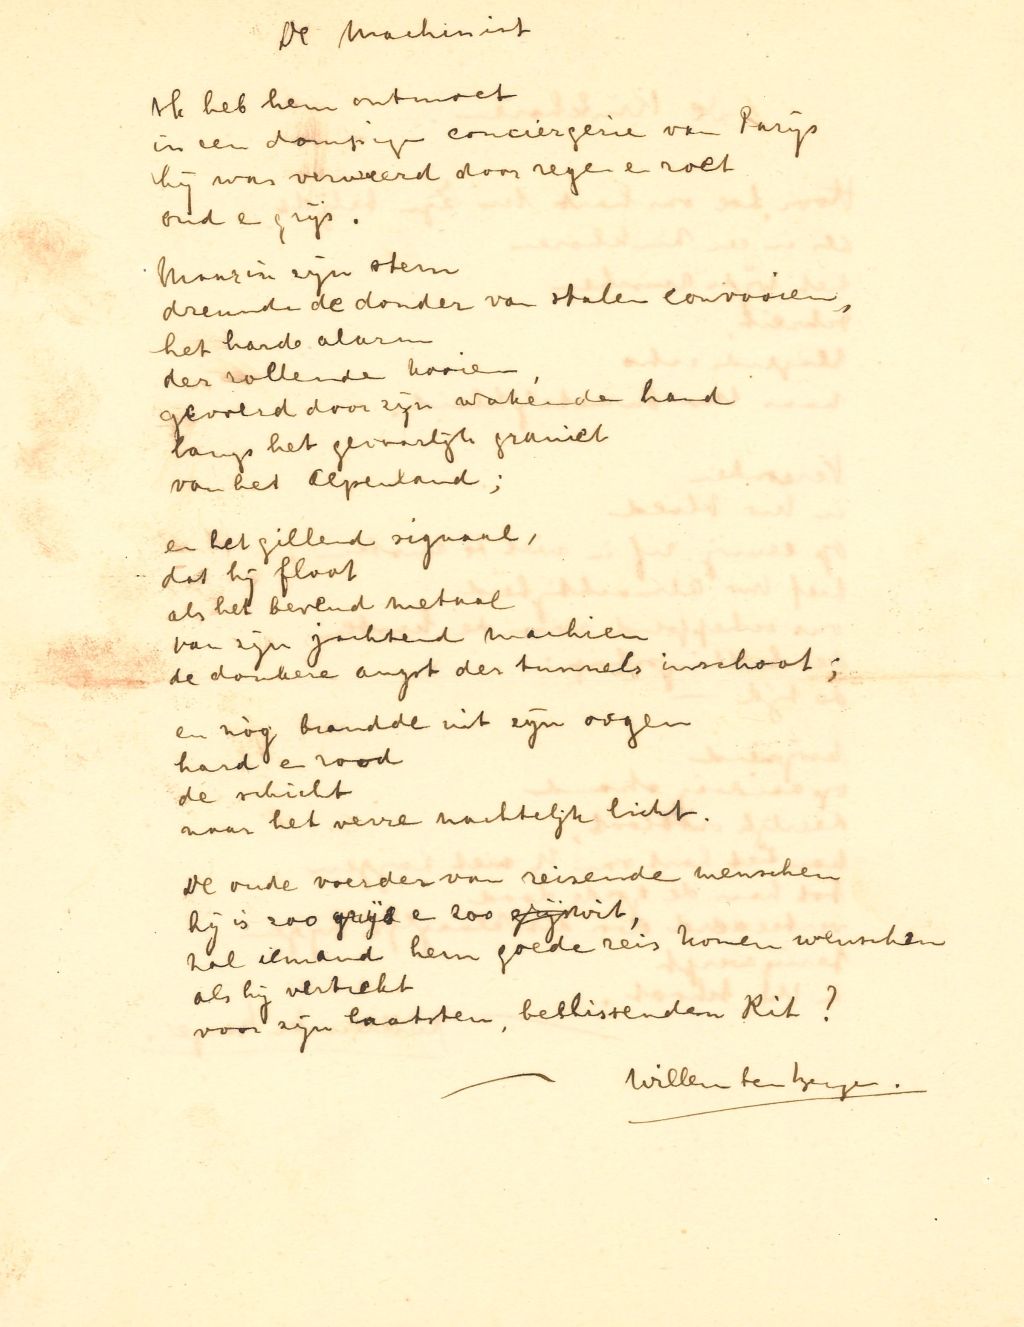 De Machinist
Ik heb hem ontmoet
in een dompige conciërgerie van Parijs
hij was verweerd door regen en roet
oud en grijs.
Maar in zijn stem
dreunde de donder van stalen convooien,
het harde alarm
der rollende kooien,
gevoerd door zijn wakende hand
langs het gevaarlijk graniet
van het Alpenland;
en het gillend signaal,
dat hij floot
als het bevend metaal
van zijn jachtend machien
de donkere angst der tunnels inschoot;
en nòg brandde uit zijn oogen
hard en rood
de schicht
naar het verre nachtelijk licht.
De oude voerder van reizende menschen
hij is zoo grijs en zoo wit,
zal iemand hem goede reis komen wenschen
als hij vertrekt
voor zijn laatsten, beslissenden Rit?
Willem ten Berge.